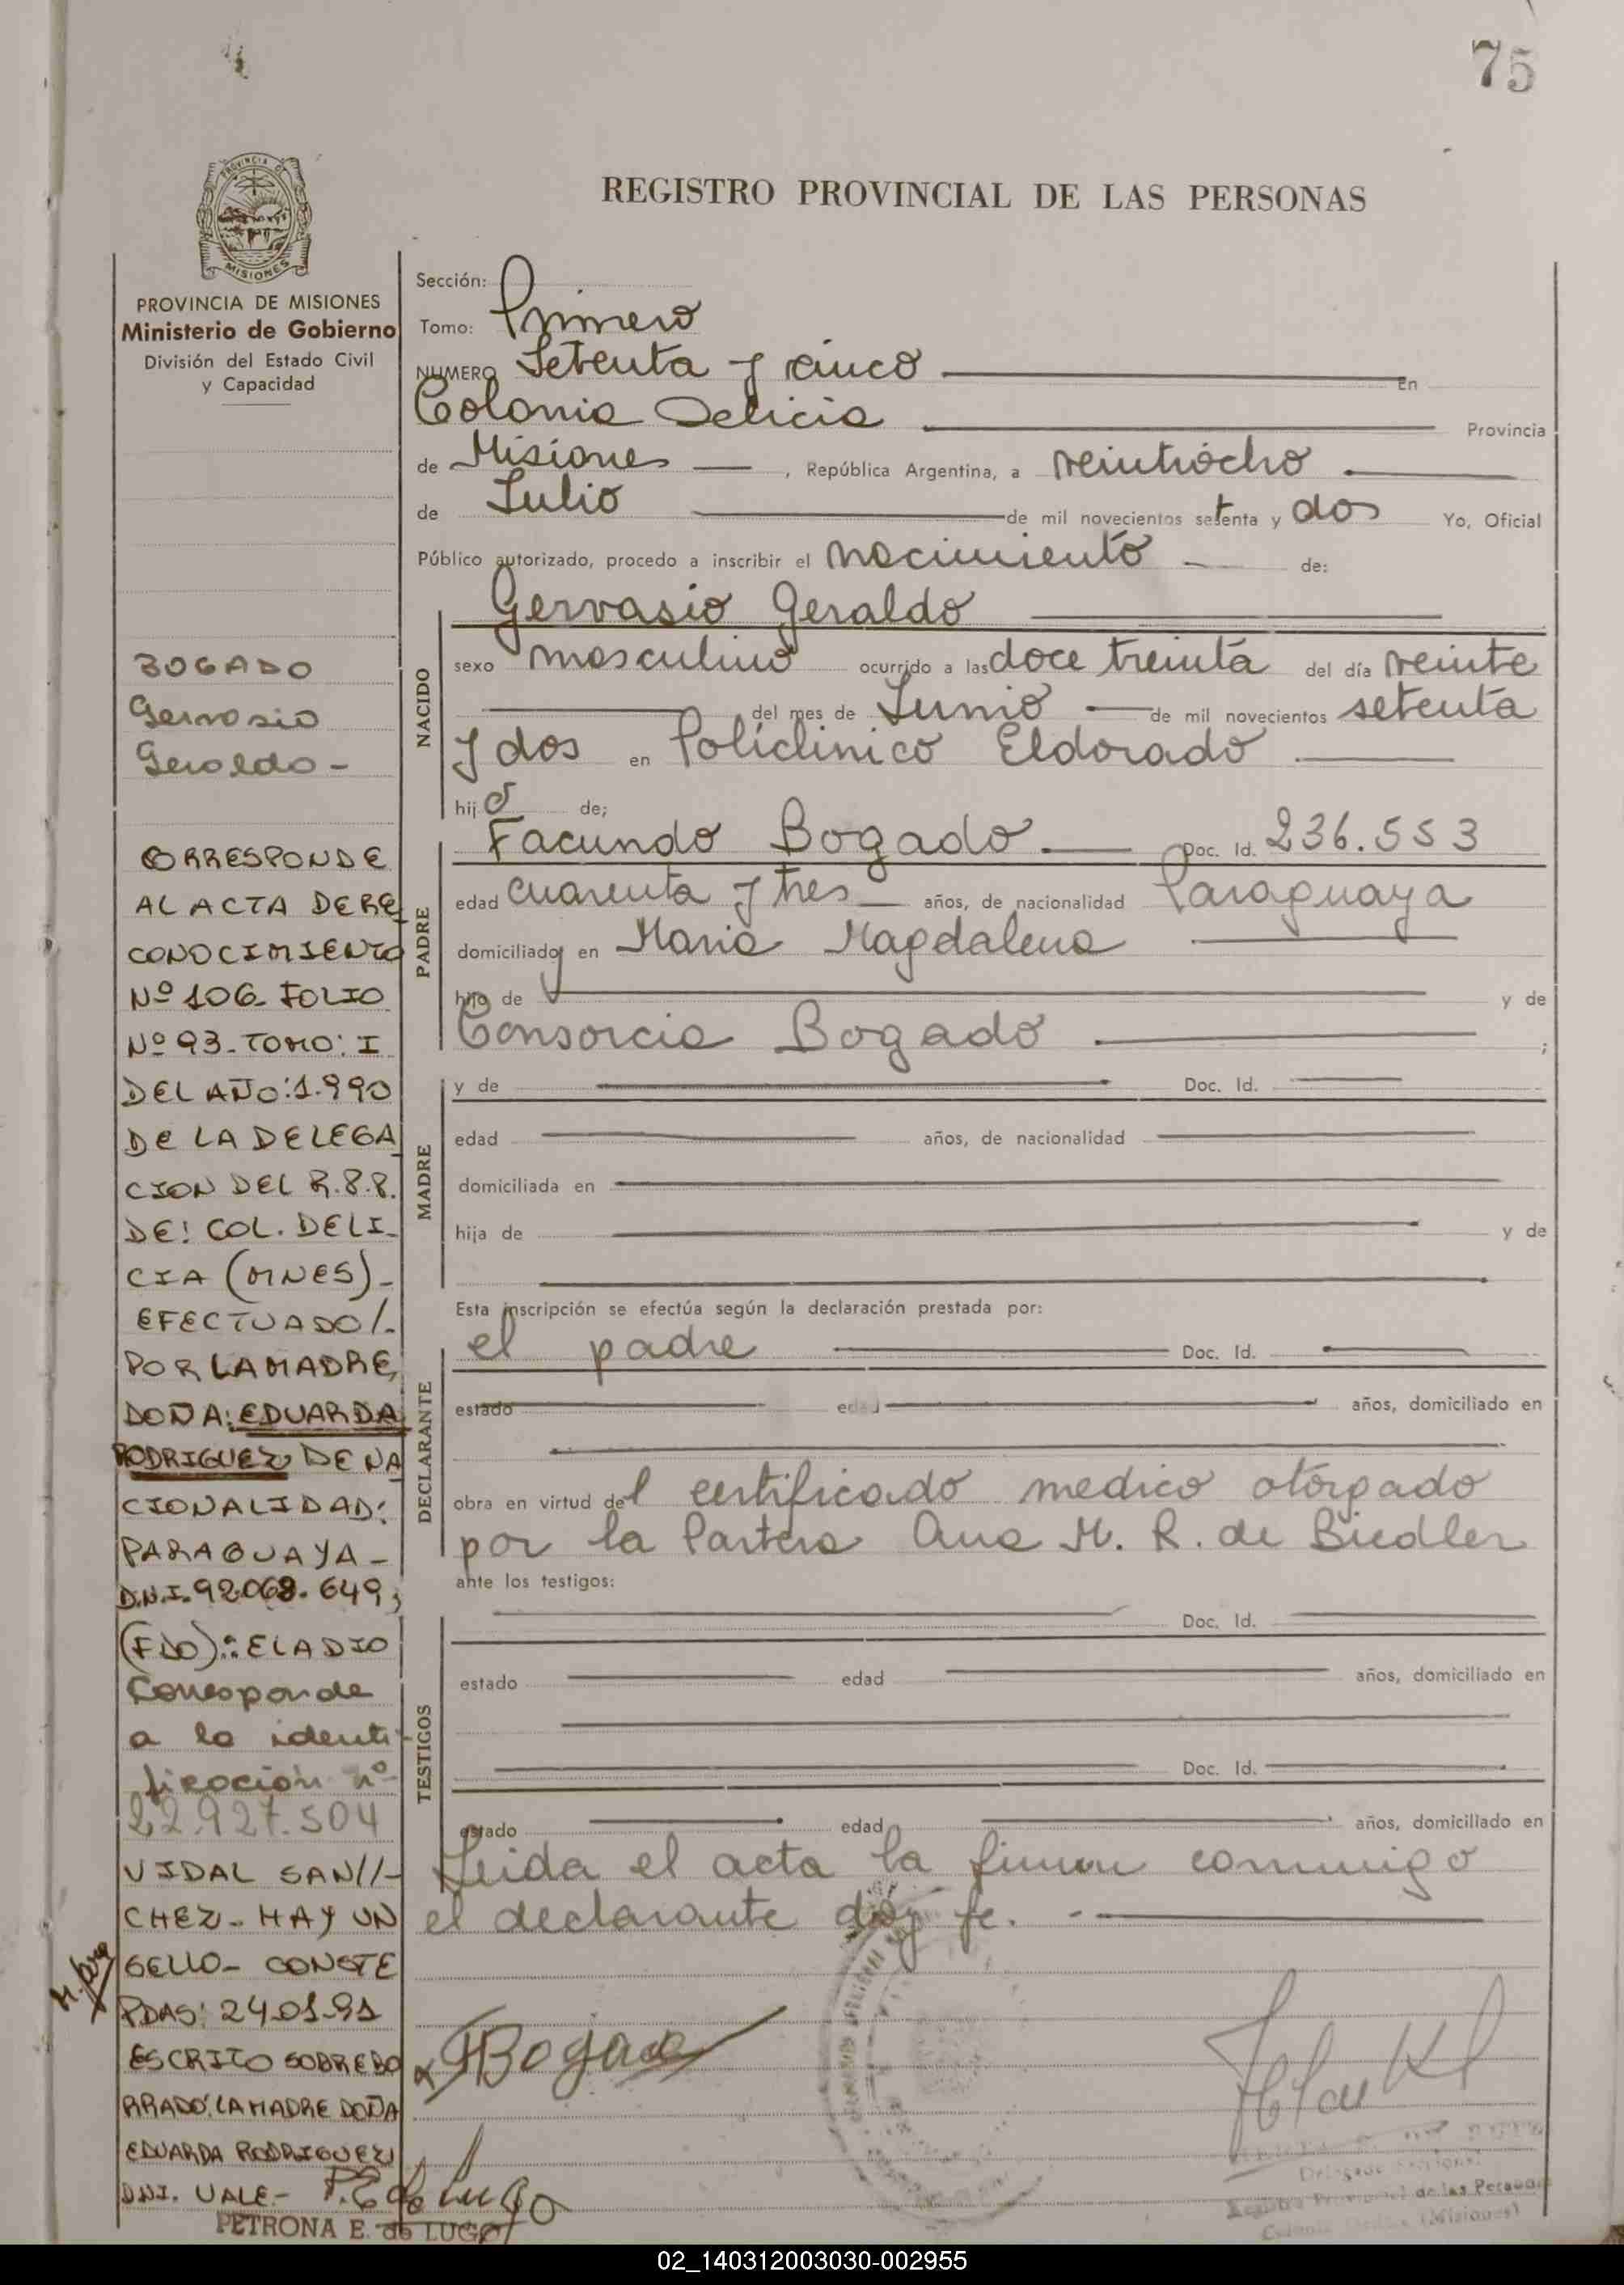 75
REGISTRO PROVINCIAL DE LAS PERSONAS
PROVINCIA DE
MISIONES
PROVINCIA DE MISIONES
Ministerio de Gobierno
División del Estado Civil
y Capacidad
BOGADO
Gervasio
Geraldo -
CORRESPONDE
AL ACTA DE RE
CONOCIMIENTO
Nº 106 FOLIO
Nº 93. TOMO: I
DEL AÑO: 1.990
DE LA DELEGA
CION DEL R.P.P.
DE: COL. DELI-
CIA (MNES)-
EFECTUADO/-
POR LA MADRE
DOÑA: EDUARDA
RODRIGUEZ DE NA
CIONALIDAD:
PARAGUAYA-
D.N.I. 92.068.649;
(FDO): ELADIO
Corresponde
a la identi
ficación nº
22.927.504
VIDAL SAN//-
CHEZ. HAY UN
SELLO- CONSTE
PDAS: 24.01.91
ESCRITO SOBRE BO
RRADO: LA MADRE DOÑA
EDUARDA RODRIGUEZ
DNI. VALE.-
PETRONA E. de LUGO
Sección:
Tomo: Primero
NUMERO Setenta y cinco En
Colonia Delicia Provincia
de Misiones , República Argentina, a veintiocho
de Julio de mil novecientos setenta y dos Yo, Oficial
Público autorizado, procedo a inscribir el nacimiento de:
Gervasio Geraldo
NACIDO
sexo masculino ocurrido a las doce treinta del día veinte
del mes de Junio de mil novecientos setenta
y dos en Policlinico Eldorado
hijo de;
Facundo Bogado Doc. Id. 236.553
PADRE
edad cuarenta y tres años, de nacionalidad Paraguaya
domiciliado en Maria Magdalena
hijo de y de
Consorcia Bogado ;
y de Doc. Id.
MADRE
edad años, de nacionalidad
domiciliada en
hija de y de
Esta inscripción se efectúa según la declaración prestada por:
el padre Doc. Id.
DECLARANTE
estado edad años, domiciliado en
obra en virtud del certificado medico otorgado
por la Partera Ana M. R. de Biedler
ante los testigos:
Doc. Id.
TESTIGOS
estado edad años, domiciliado en
Doc. Id.
estado edad años, domiciliado en
Leida el acta la firman conmigo
el declarante doy fe. -
FBogado
Registro Provincial de las Personas
02_140312003030-002955